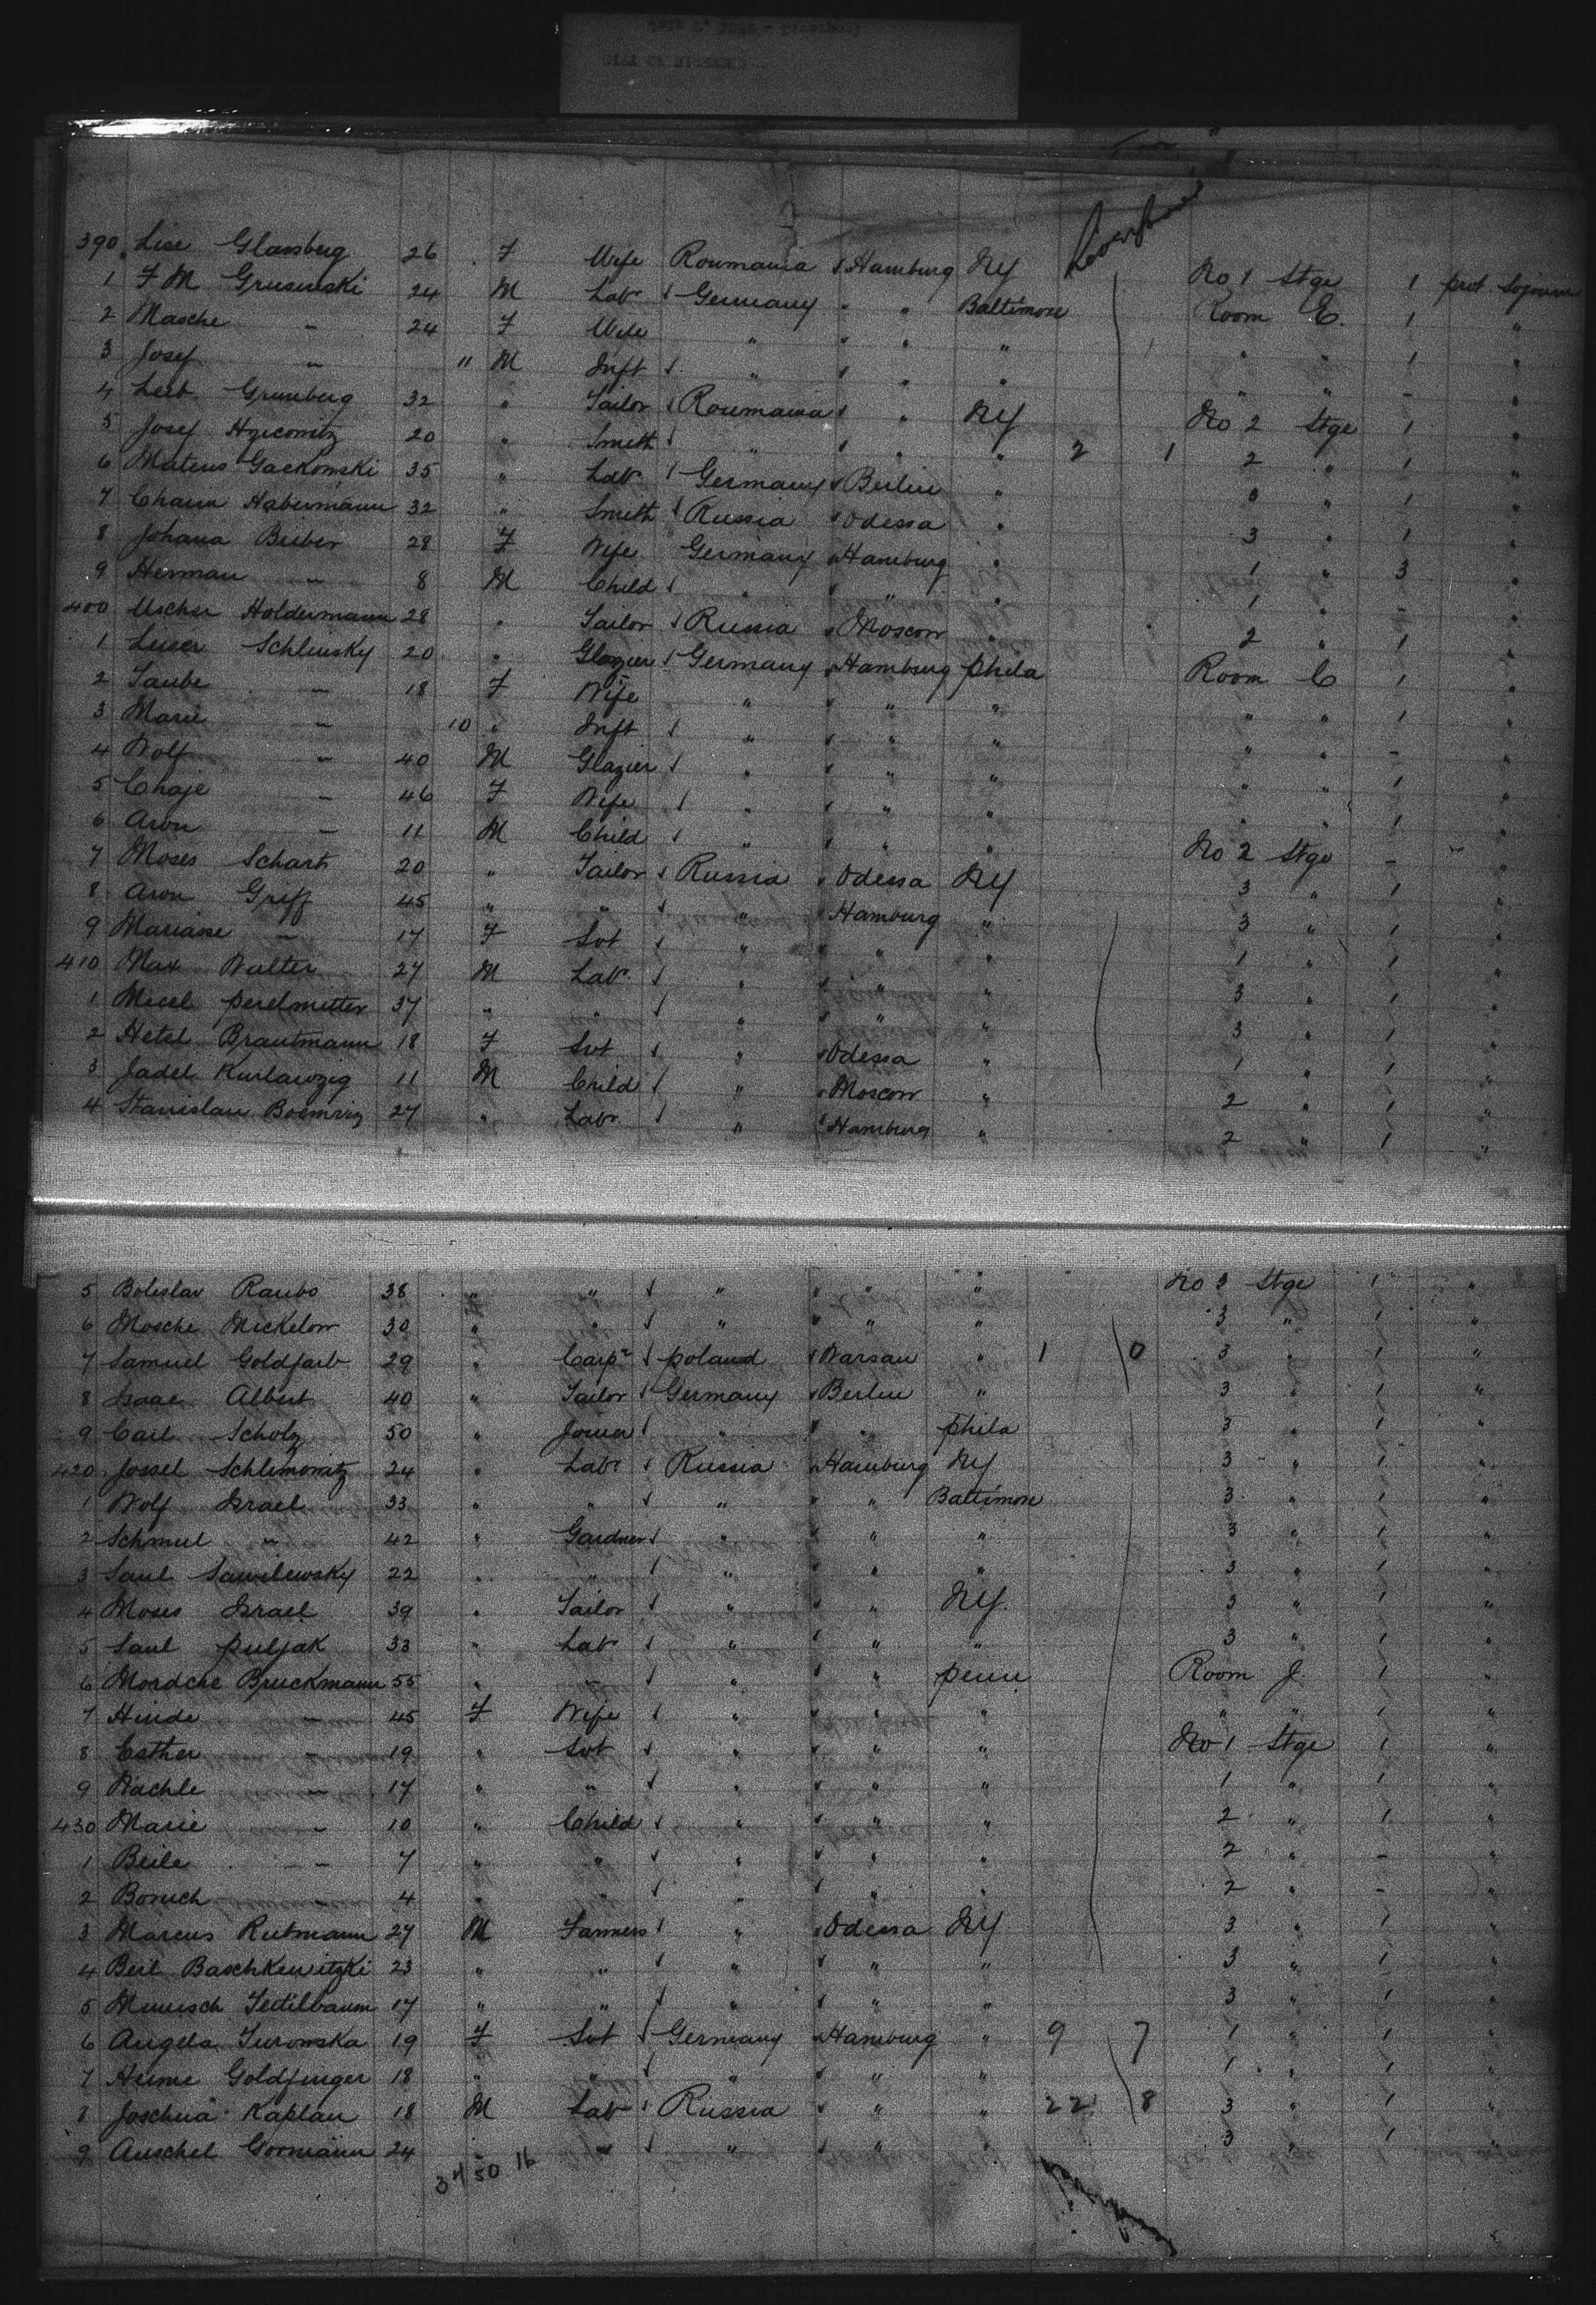 390 Lise Glassberg 26 F Wife Roumania Hamburg NY No 1 Stge 1 prot. Sojourn
1 F M Grusinski 24 M Lab Germany " " Baltimore Room E. 1 "
2 Masche " 24 F Wife " " " " " " 1 "
3 Josef " 11 M Inft " " " " " " - "
4 Leib Grunberg 32 " Tailor Roumania " NY No 2 Stge 1 "
5 Josef 20 " Smith " " " 2 1 2 " 1 "
6 Mateus Gackowski 35 " Lab Germany Berlin " 3 " 1 "
7 Chaim Habermann 32 " Smith Russia Odessa " 3 " 1 "
8 Johana Bieber 28 F Wife Germany Hamburg " 1 " 3 "
9 Herman " 8 M Child " " " 1 " - "
400 Holdermann 28 " Tailor Russia Moscow " 2 " 1 "
1 Leiser Schlinsky 20 " Glazier Germany Hamburg Phila Room C 1 "
2 Taube " 18 F Wife " " " " " 1 "
3 Marie " 10 " Inft " " " " " - "
4 Wolf " 40 M Glazier " " " " " 1 "
5 Chaje " 46 F Wife " " " " " 1 "
6 Aron " 11 M Child " " " No 2 Stge - "
7 Moses 20 " Tailor Russia Odessa NY 3 " 1 "
8 Aron Griff 45 " " " Hamburg " 3 " 1 "
9 Mariase " 17 F Svt " " " 1 " 1 "
410 Max Walter 27 M Lab " " " 3 " 1 "
1 Perelmutter 37 " " " " " 3 " 1 "
2 Hetel Brautmann 18 F Svt " Odessa " 1 " 1 "
3 Jadel 11 M Child " Moscow " 2 " 1 "
4 Stanislau 27 " Labr " Hamburg " 2 " 1 "
5 Boleslav Raubo 38 " " " " " No 3 Stge 1 "
6 Mosche Mickelow 30 " " " " " 3 " 1 "
7 Samuel Goldfarb 29 " Carpr Poland Warsaw " 1 0 3 " 1 "
8 Isaac Albert 40 " Tailor Germany Berlin " 3 " 1 "
9 Carl Scholz 50 " " " Phila 3 " 1 "
420 Jossel Schlimowitz 24 " Labr Russia Hamburg NY 3 " 1 "
1 Wolf Israel 33 " " " " Baltimore 3 " 1 "
2 Schmul " 42 " Gardner " " " 3 " 1 "
3 Saul Sawilewsky 22 " " " " " 3 " 1 "
4 Moses Israel 39 " Tailor " " NY. 3 " 1 "
5 Saul Puljak 33 " Lab " " " 3 " 1 "
6 Mordche Bruckmann 55 " " " " Penn Room J. 1 "
7 Hinde " 45 F Wife " " " " " 1 "
8 Esther " 19 " Svt " " " No 1 Stge 1 "
9 Rachle " 17 " " " " " 1 " 1 "
430 Marie " 10 " Child " " " 2 " 1 "
1 Beile " 7 " " " " " 2 " - "
2 Boruch " 4 " " " " " 2 " - "
3 Marcus Rutmann 27 M Farmers " Odessa NY 3 " 1 "
4 Beil Baschkewitzki 23 " " " " " 3 " 1 "
5 17 " " " " " 3 " 1 "
6 Angela Turowska 19 F Svt Germany Hamburg " 9 7 1 " 1 "
7 Goldfinger 18 " " " " " 1 " 1 "
8 Joschua Kaplan 18 M Lab Russia " " 22 8 3 " 1 "
9 Anschel Gormann 24 " " " " " 3 " 1 "
34 50 16